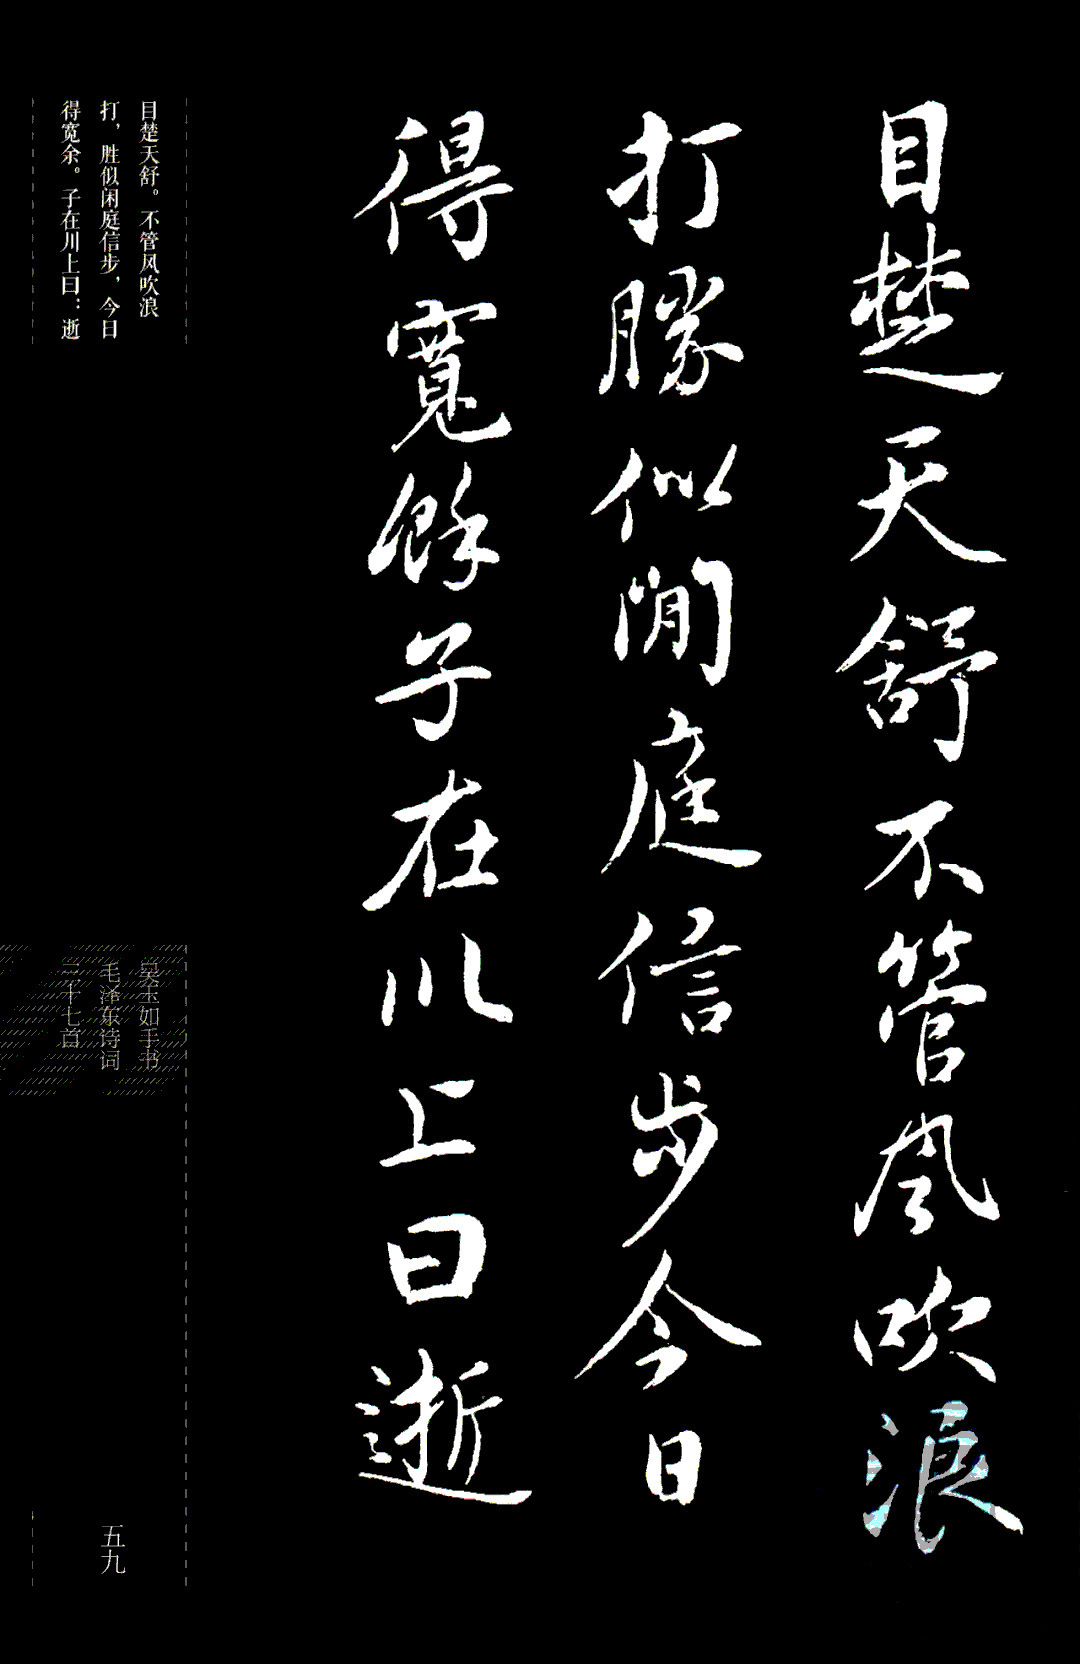 目楚天舒不管风吹浪
打勝似閒庭信步今日
得寬餘子在川上曰逝
目楚天舒。不管风吹浪
打，胜似闲庭信步，今日
得宽余。子在川上曰：逝
吴玉如手书
毛泽东诗词
三十七首
五九